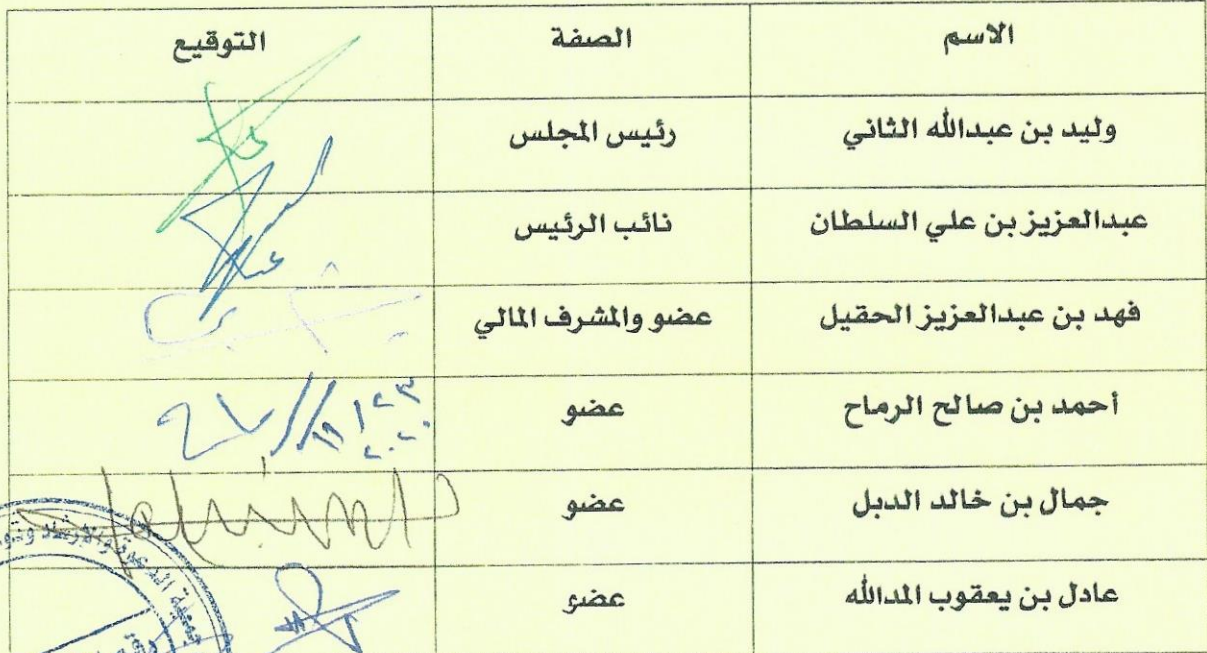 الاسم الصفة التوقيع
وليد بن عبدالله الثاني رئيس المجلس
عبدالعزيز بن علي السلطان نائب الرئيس
فهد بن عبدالعزيز الحقيل عضو والمشرف المالي
أحمد بن صالح الرماح عضو ٢٣/١١/٢٠٢٠
جمال بن خالد الدبل عضو
عادل بن يعقوب المدالله عضو
الدعوة والإرشاد